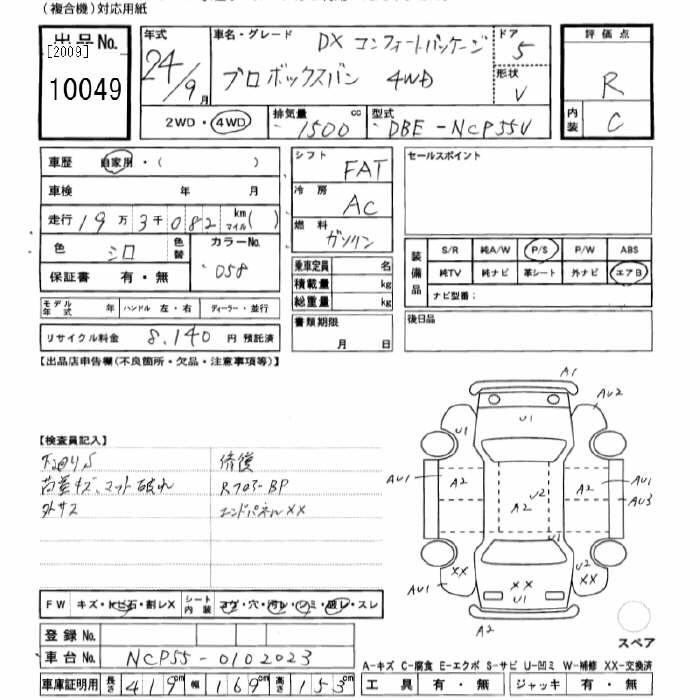 (複合機)対応用紙
出品No. [2009] 10049
年式 24/9月
車名・グレード DX コンフォートパッケージ
プロボックスバン 4WD
ドア 5
形状 V
評価点 R
内装 C
2WD・4WD 排気量 1500 cc 型式 DBE-NCP55V
車歴 自家用・( )
車検 年 月
走行 19万3千082 km マイル( )
色 シロ 色替 カラーNo. 058
保証書 有・無
モデル年式 年 ハンドル 左・右 ディーラー・並行
リサイクル料金 8,140 円 預託済
シフト FAT
冷房 AC
燃料 ガソリン
乗車定員 名
積載量 kg
総重量 kg
書類期限
月 日
セールスポイント
装備品 S/R 純A/W P/S P/W ABS
純TV 純ナビ 革シート 外ナビ エアB
ナビ型番:
後日品
【出品店申告欄(不良箇所・欠品・注意事項等)】
【検査員記入】
下回りS 修復
荷室キズ、マット破れ Rフロアー BP
外サス エンドパネルXX
A1
AU2
U1 U1
AU1 A2 A2 U2 A2 AU1
AU3
U1
AU1 XX XX U1 U2 XX
A2
スペア
FW キズ・トビ石・割レX シート内装 コゲ・穴・汚レ・シミ・破レ・スレ
登録No.
車台No. NCP55-0102023
車庫証明用 長さ 419cm 幅 169cm 高さ 153cm
A-キズ C-腐食 E-エクボ S-サビ U-凹ミ W-補修 XX-交換済
工具 有・無 ジャッキ 有・無